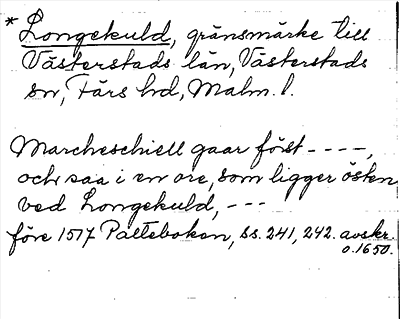 * Longekuld, gränsmärke till
Västerstads län, Västerstads
sn, Färs hd, Malm. l.
Marcheschiell gaar först - - - -,
och saa i en ore, som ligger östen
ved Longekuld, - - -
före 1517 Pattebokon, ss. 241, 242. avskr.
o. 1650.